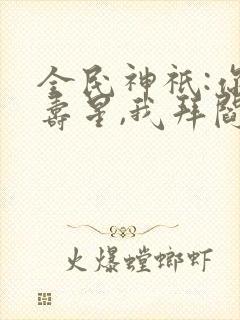 全民神祇:你
寿星,我拜阎
火爆螳螂虾